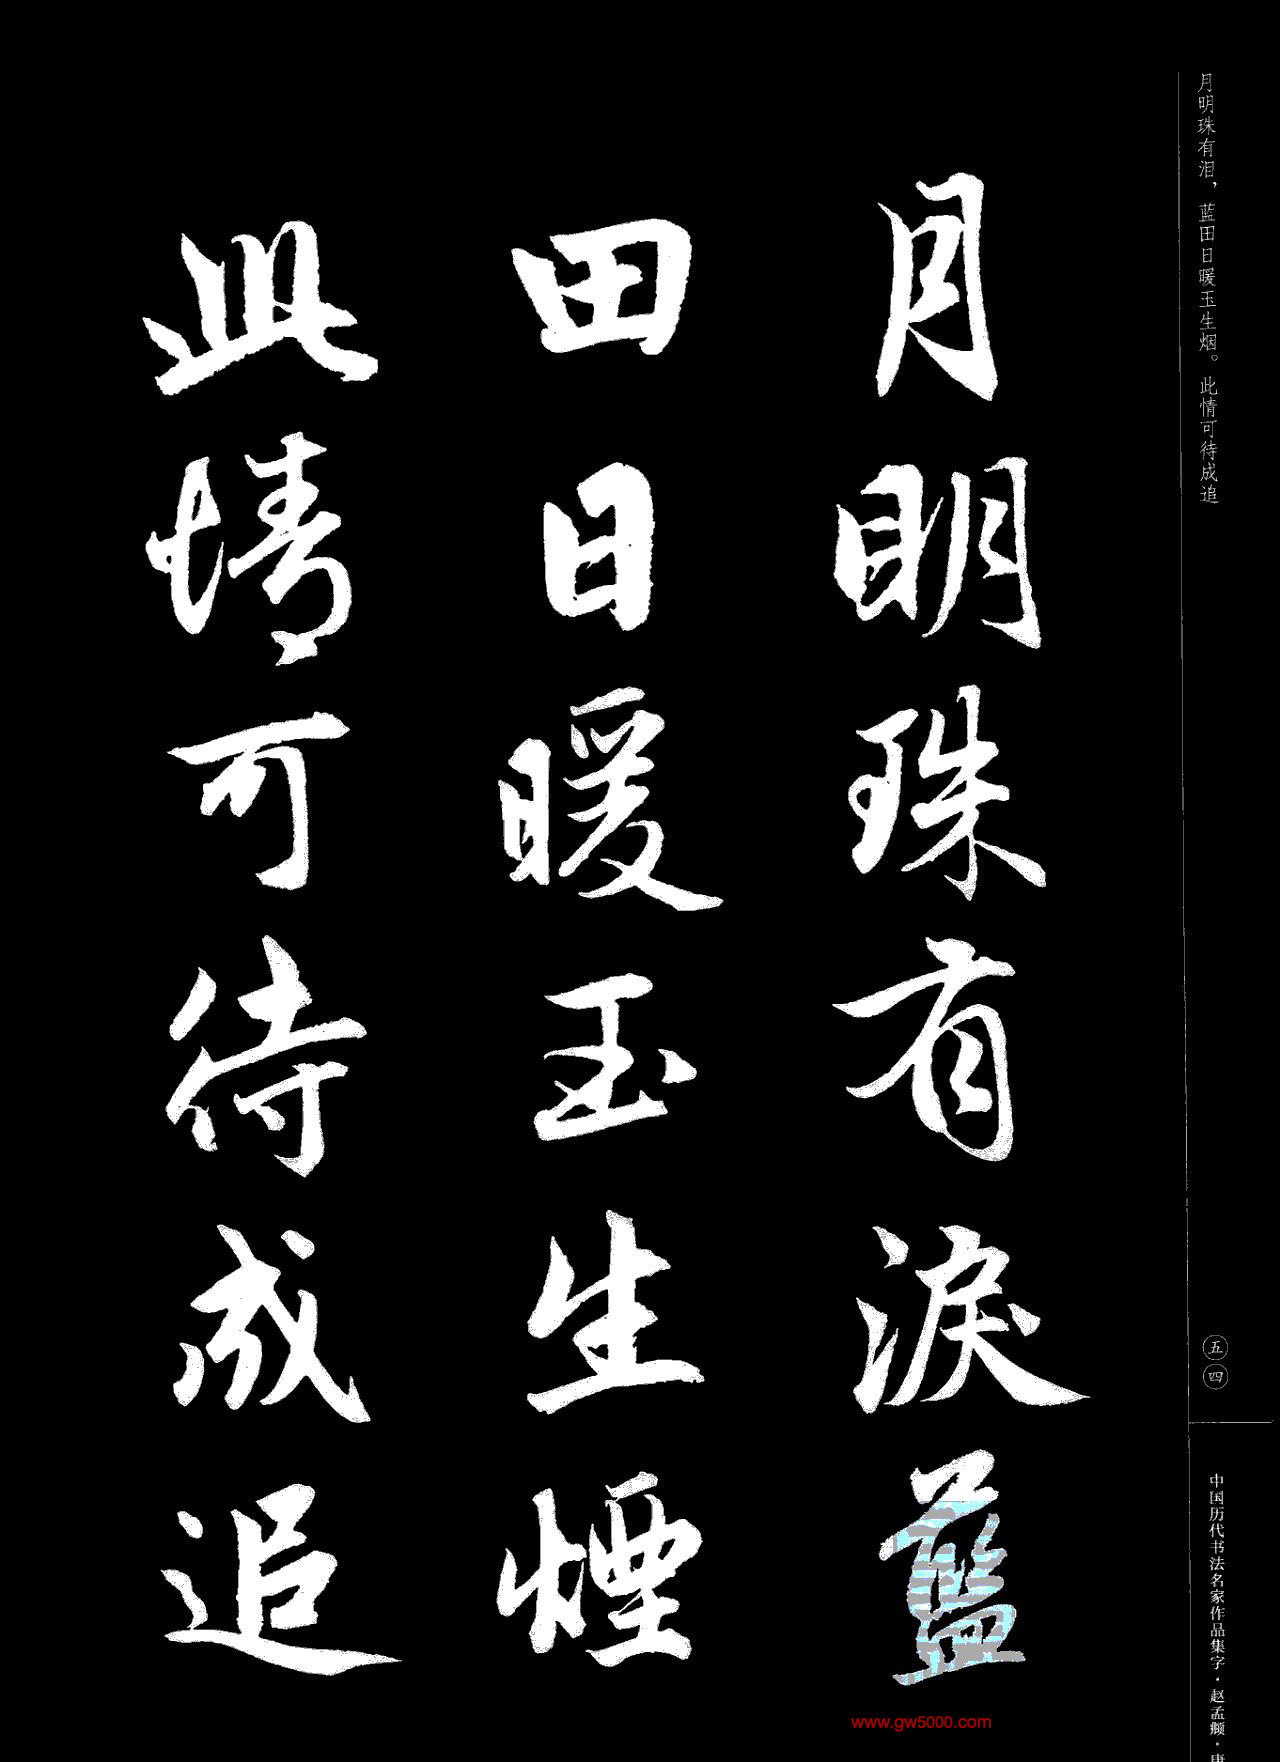 月明珠有泪，蓝田日暖玉生烟。此情可待成追
月明珠有淚藍
田日暖玉生煙
此情可待成追
五四
中国历代书法名家作品集字·赵孟頫·唐
www.gw5000.com